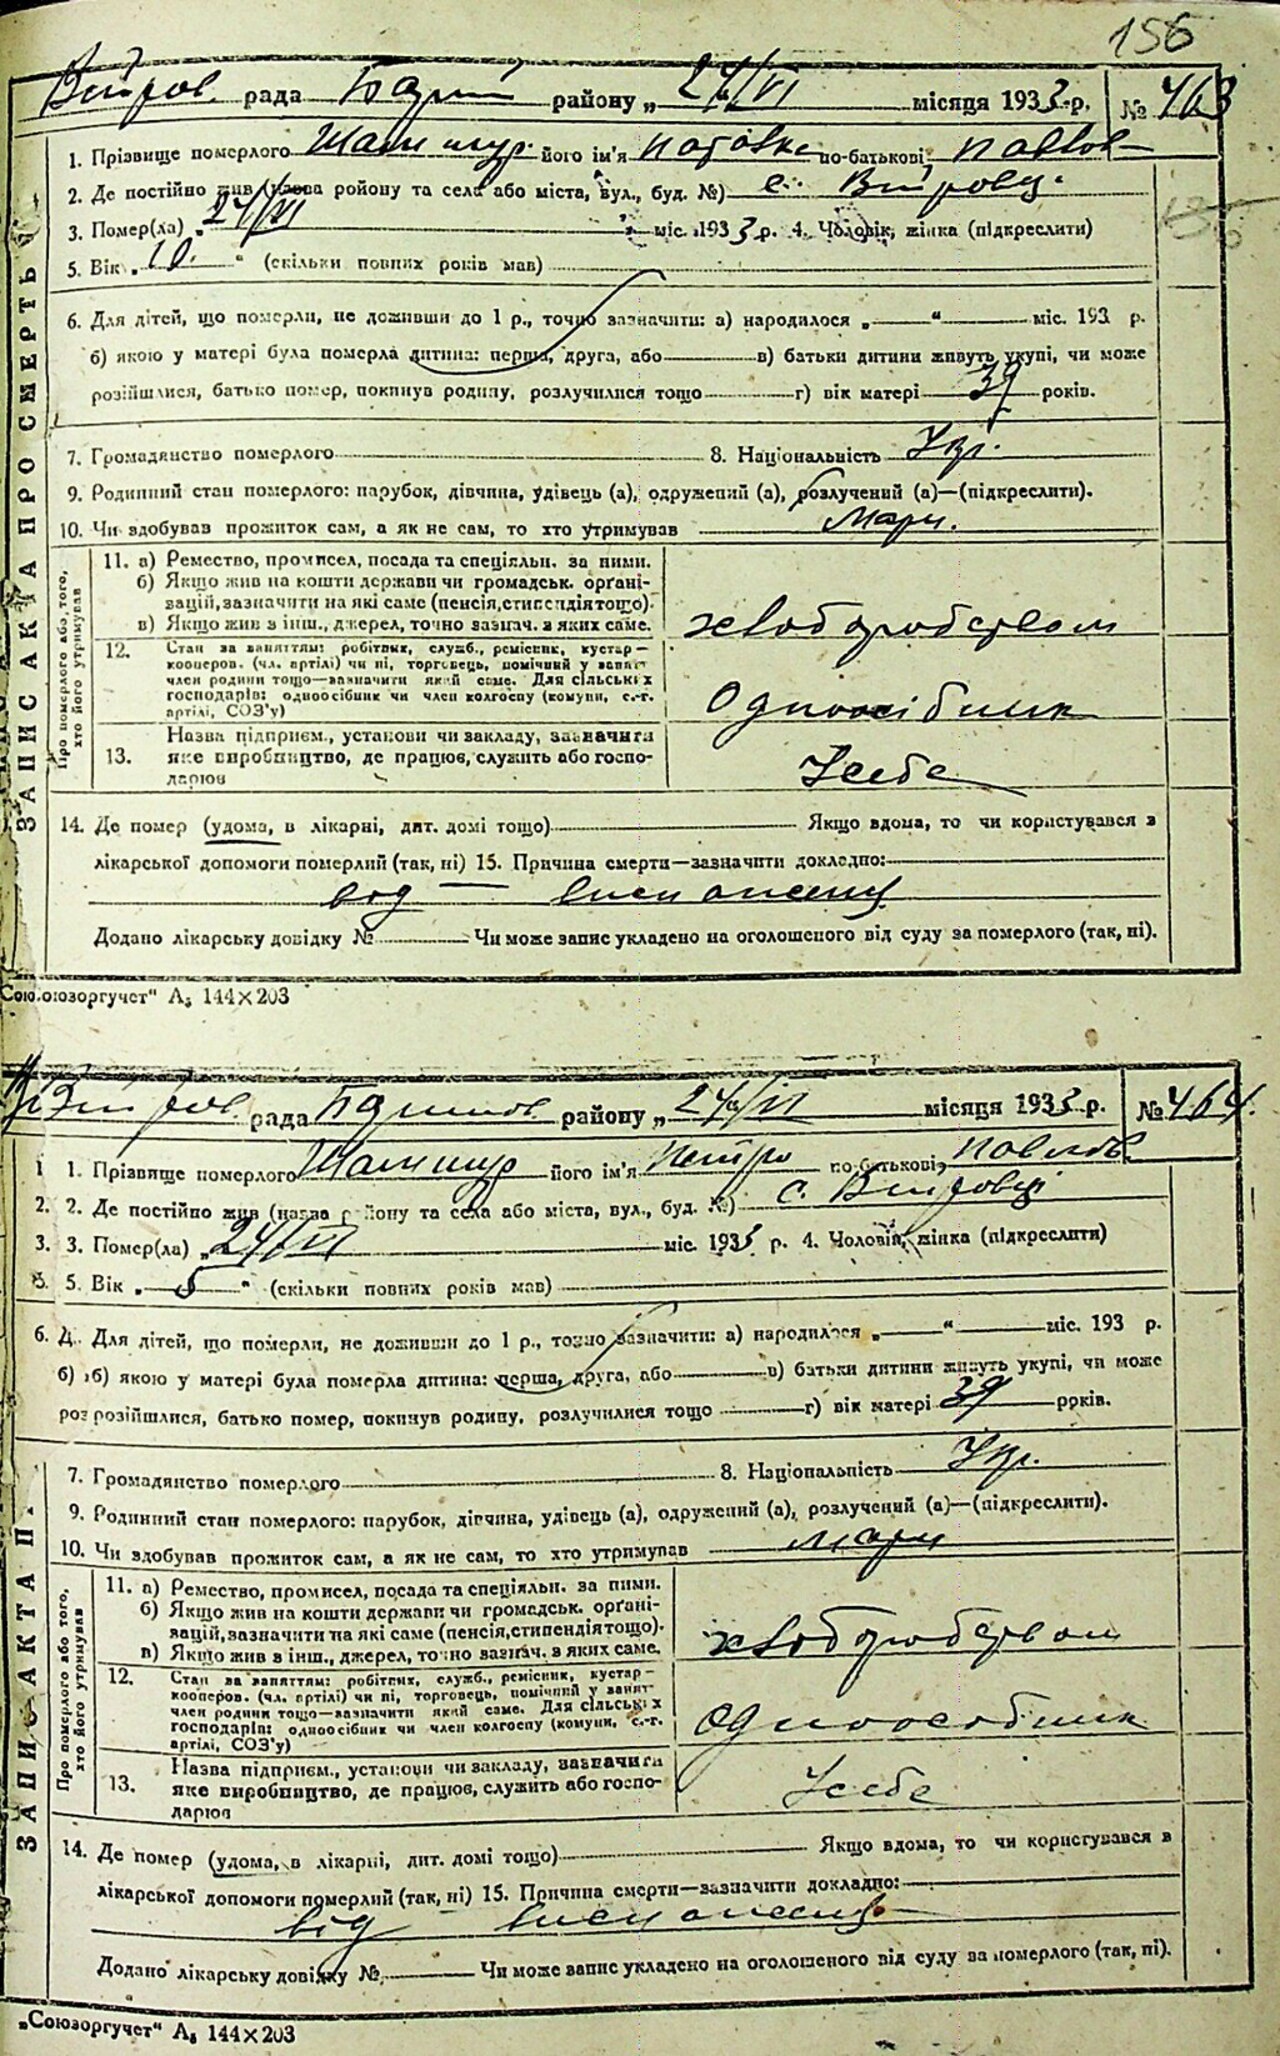 156
рада района „ 24/VI місяця 1933 р. № 463
1. Прізвище померлого його ім'я по-батькові
2. Де постійно жив (назва ройону та села або міста, вул., буд. №) с. Вітровці
3. Помер(ла) „ 24/VI міс. 1933 р. 4. Чоловік, жінка (підкреслити)
5. Вік „ 10. “ (скільки повних років мав)
6. Для дітей, що померли, не доживши до 1 р., точно зазначити: а) народилося „ “ міс. 193 р.
б) якою у матері була померла дитина: перша, друга, або в) батьки дитини живуть укупі, чи може
розійшлися, батько помер, покинув родину, розлучилися тощо г) вік матері 39 років.
7. Громадянство померлого 8. Національність Укр.
9. Родинний стан померлого: парубок, дівчина, удівець (а), одружений (а), розлучений (а)—(підкреслити).
10. Чи здобував прожиток сам, а як не сам, то хто утримував Мати.
ЗАПИС АКТА ПРО СМЕРТЬ
Про померлого або того, хто його утримував
11. а) Ремество, промисел, посада та спеціяльн. за ними.
б) Якщо жив на кошти держави чи громадськ. органі-
зацій, зазначити на які саме (пенсія, стипендія тощо).
в) Якщо жив з інш., джерел, точно зазнач. з яких саме.
хлоборобством
12. Стан за заняттям: робітник, служб., ремісник, кустар—
кооперов. (чл. артілі) чи ні, торговець, помічний у занят-
член родини тощо—зазначити який саме. Для сільських
господарів: одноосібник чи член колгоспу (комуни, с.-г.
артілі, СОЗ'у)
Одноосібник
13. Назва підприєм., установи чи закладу, зазначити
яке виробництво, де працює, служить або госпо-
дарює
У себе
14. Де помер (удома, в лікарні, дит. домі тощо) Якщо вдома, то чи користувався з
лікарської допомоги померлий (так, ні) 15. Причина смерти—зазначити докладно:
від виснаження
Додано лікарську довідку № Чи може запис укладено на оголошеного від суду за померлого (так, ні).
„Союзоргучет“ А₅ 144×203
рада району „ 24/VI місяця 1933 р. № 464.
1. Прізвище померлого його ім'я Петро по-батькові Павлов
2. Де постійно жив (назва району та села або міста, вул., буд. №) с. Вітровці
3. Помер(ла) „ 24/VI міс. 1933 р. 4. Чоловік, жінка (підкреслити)
5. Вік „ 5 “ (скільки повних років мав)
6. Для дітей, що померли, не доживши до 1 р., точно зазначити: а) народилося „ “ міс. 193 р.
б) якою у матері була померла дитина: перша, друга, або в) батьки дитини живуть укупі, чи може
розійшлися, батько помер, покинув родину, розлучилися тощо г) вік матері 39 років.
7. Громадянство померлого 8. Національність Укр.
9. Родинний стан померлого: парубок, дівчина, удівець (а), одружений (а), розлучений (а)—(підкреслити).
10. Чи здобував прожиток сам, а як не сам, то хто утримував Мати
ЗАПИС АКТА П
Про померлого або того, хто його утримував
11. а) Ремество, промисел, посада та спеціяльн. за ними.
б) Якщо жив на кошти держави чи громадськ. органі-
зацій, зазначити на які саме (пенсія, стипендія тощо).
в) Якщо жив з інш., джерел, точно зазнач. з яких саме.
хлоборобством
12. Стан за заняттям: робітник, служб., ремісник, кустар—
кооперов. (чл. артілі) чи ні, торговець, помічний у занят-
член родини тощо—зазначити який саме. Для сільських
господарів: одноосібник чи член колгоспу (комуни, с.-г.
артілі, СОЗ'у)
Одноособник
13. Назва підприєм., установи чи закладу, зазначити
яке виробництво, де працює, служить або госпо-
дарює
У себе
14. Де помер (удома, в лікарні, дит. домі тощо) Якщо вдома, то чи користувався в
лікарської допомоги померлий (так, ні) 15. Причина смерти—зазначити докладно:
від виснаження
Додано лікарську довідку № Чи може запис укладено на оголошеного від суду за померлого (так, ні).
„Союзоргучет“ А₅ 144×203